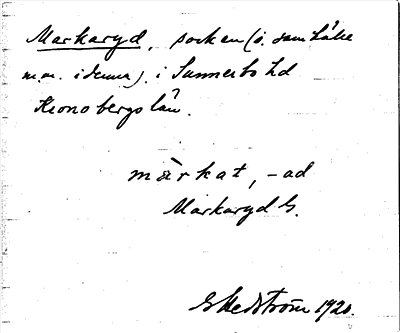 Markaryd, socken (o. samhälle
m.m. i denna). i Sunnerbo hd
Kronobergs län.
màrkat, -ad
Markaryd G.
G Hedström 1920.